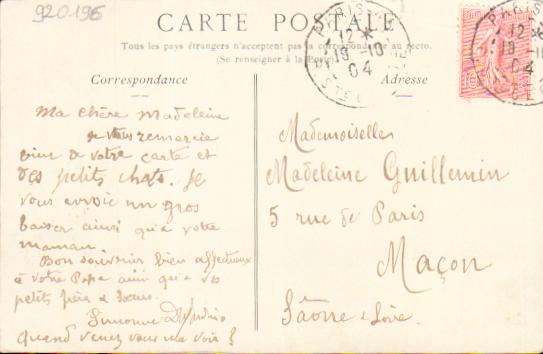 920196
CARTE POSTALE
Tous les pays étrangers n'acceptent pas la correspondance au recto.
(Se renseigner à la Poste)
Correspondance
Ma chère Madeleine
je vous remercie
bien de votre carte et
des petits chats. Je
vous envoie un gros
baiser ainsi qu'à votre
maman.
Bon souvenir bien affectueux
à votre Papa ainsi qu'à vos
petits frère & soeurs.
Simonne
Quand venez vous me voir ?
Adresse
Mademoiselle
Madeleine Guillemin
5 rue de Paris
Macon
Saône & Loire
PARIS
12
19-10
04
PARIS
12
19
04